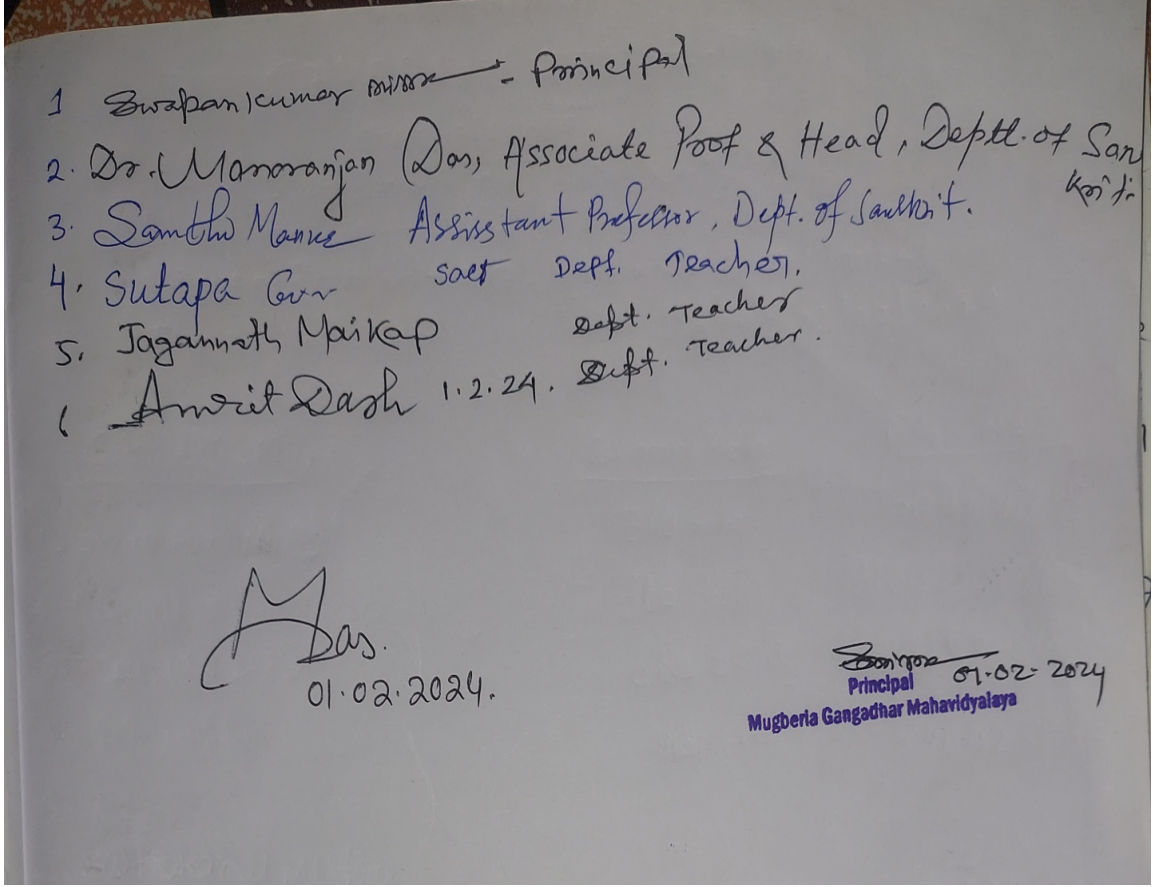 1 Swapan Kumar Misra - Principal
2. Dr. Manoranjan Das, Associate Prof & Head, Deptt. of San
krit.
3. Assisstant Professor, Dept. of Sanskrit.
4. Sutapa SACT Dept. Teacher.
5. Jagannath Maikap Dept. Teacher
6 Amrit Dash 1.2.24. Dept. Teacher.
MDas.
01.02.2024.
01-02-2024
Principal
Mugberia Gangadhar Mahavidyalaya